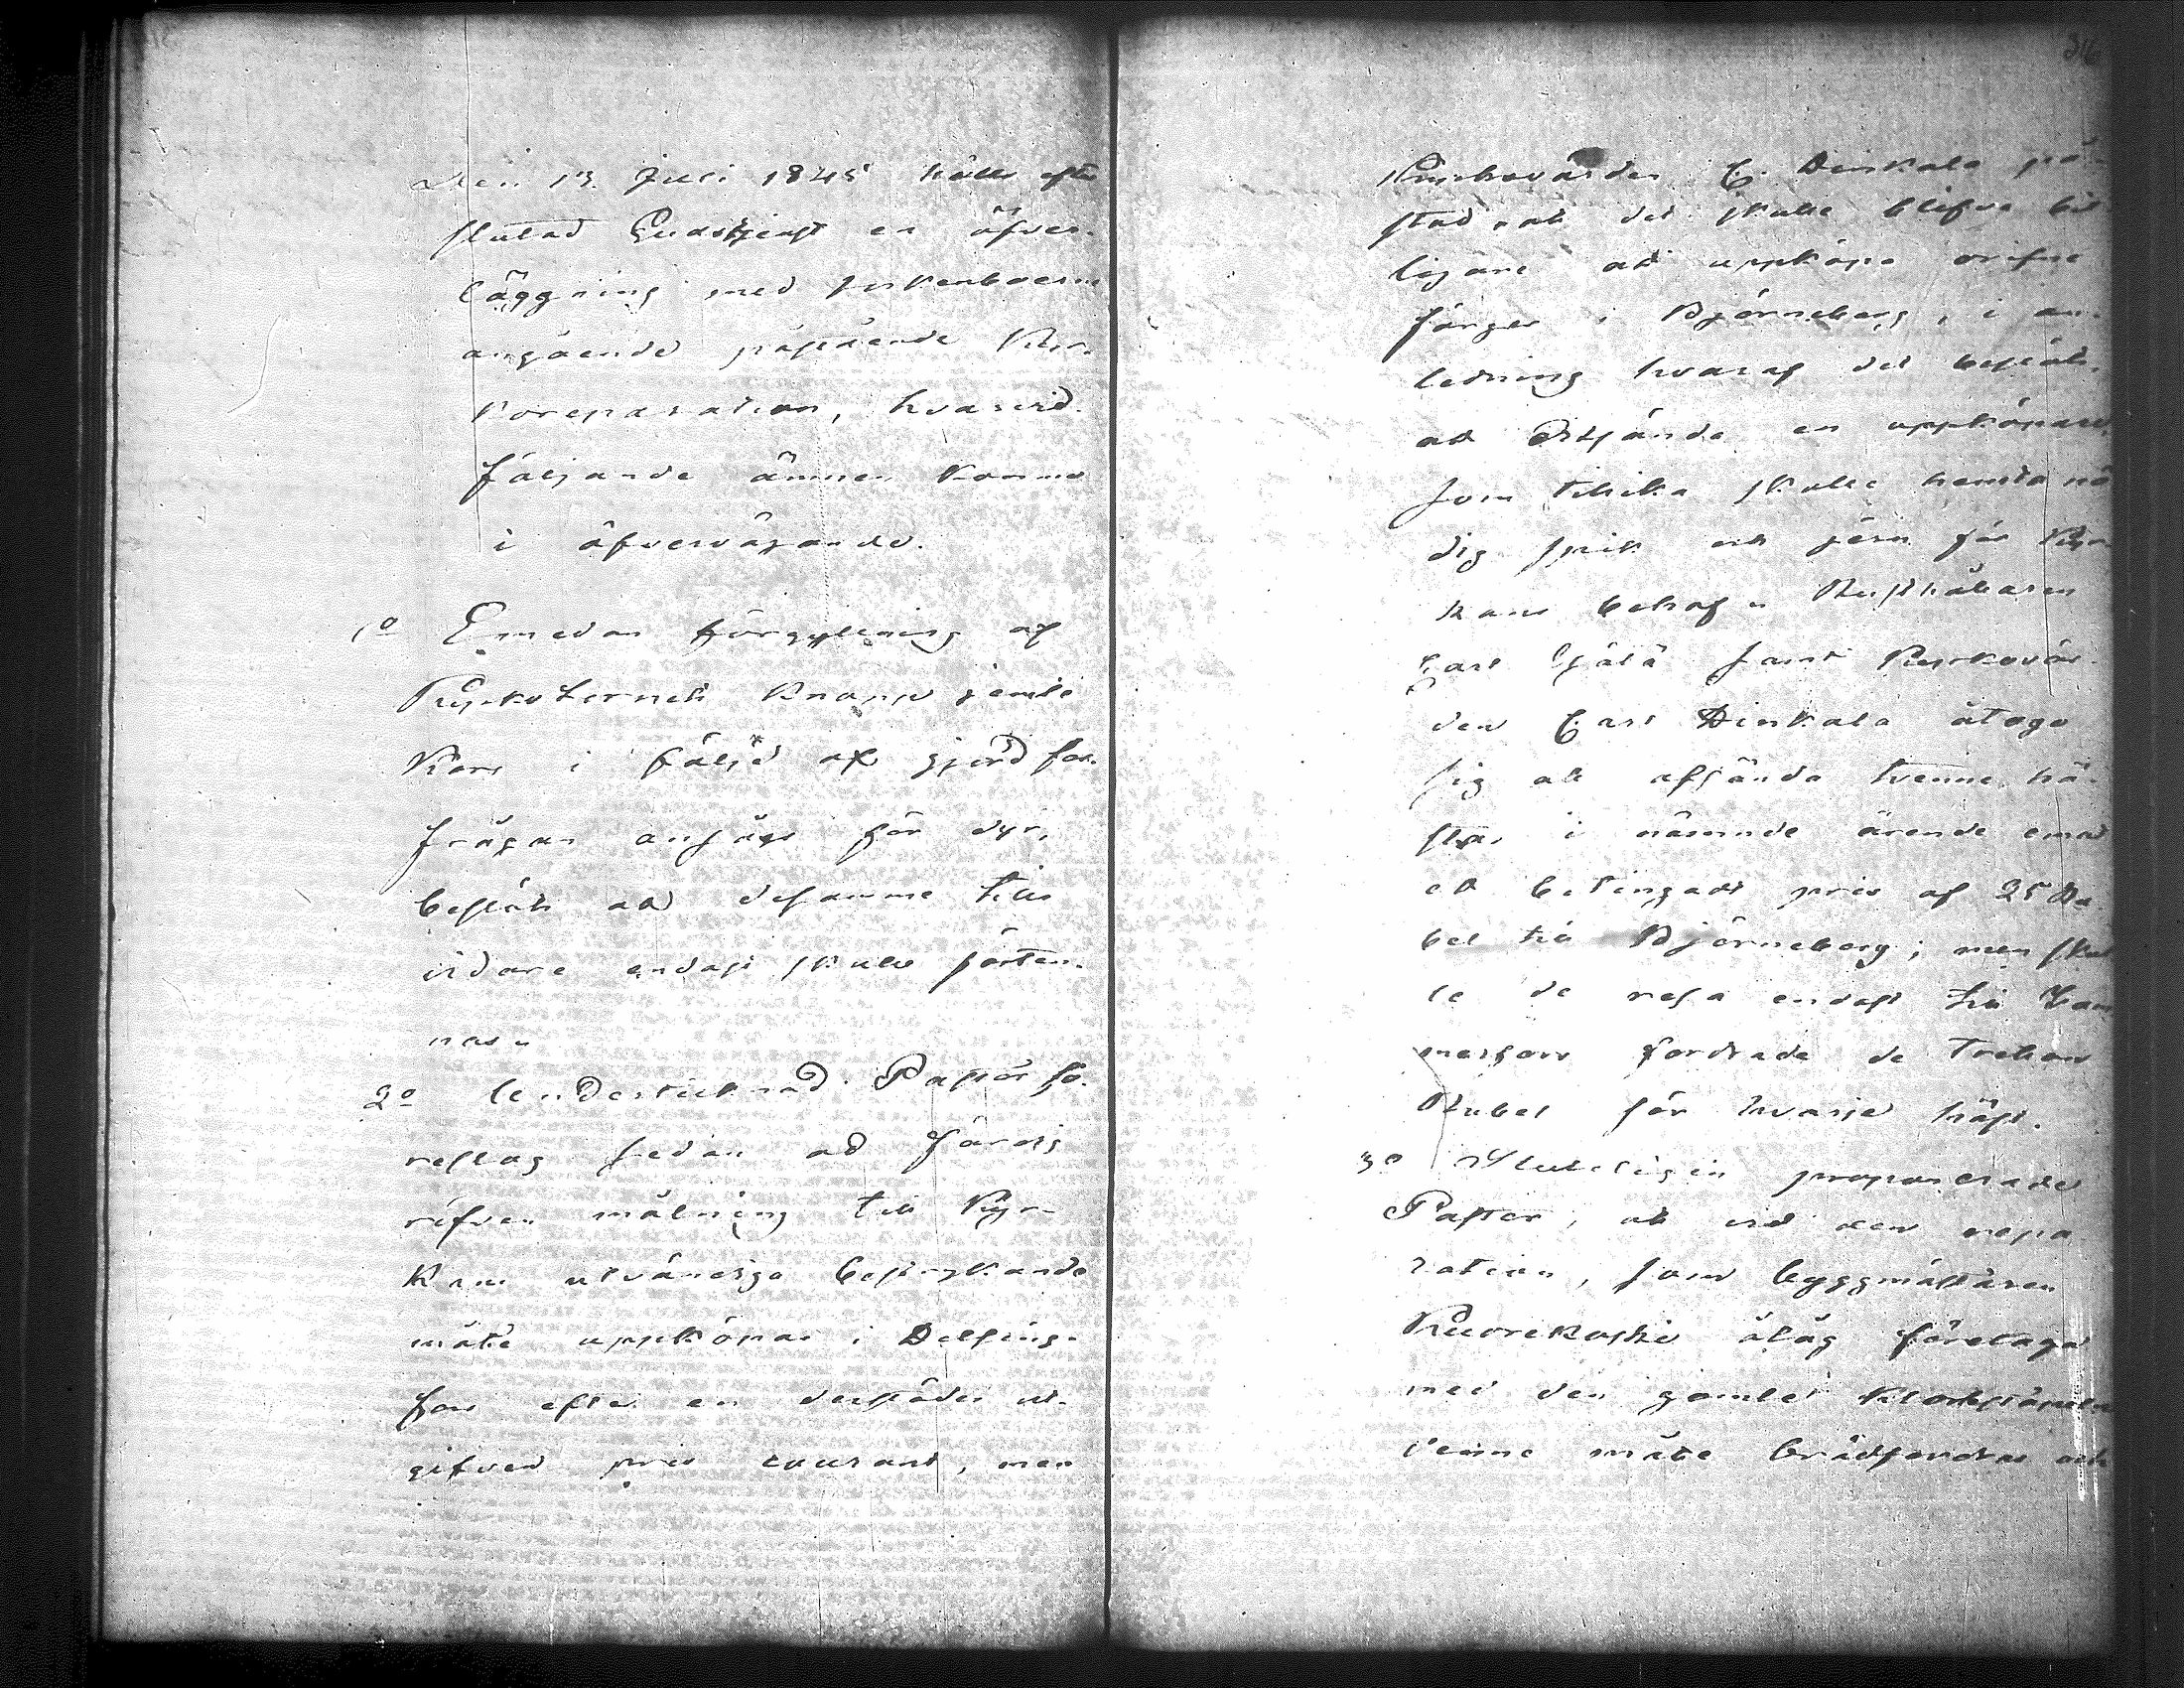 Den 13 Juli 1845 hölls efter
slutad Gudstjenst en öfver-
läggning med sockenboerne
angående påstående Kyr-
koreparation, hvarvid
följande ämnen kommo
i öfvervägande.
1º Emedan förgyllning af
Kyrkotornets Knapp jemte
Kors i följd af gjord för-
frågan ansågs för dyr,
beslöts att desamme tills
vidare endast skulle förten-
nas.
2º Undertecknad Pastor fö-
reslog sedan att färdig
rifven målning till Kyr-
kans utvändiga bestrykande
måtte uppköpas i Helsing-
fors efter en derstädes ut-
gifven pris courant, men
36
Kyrkovärden C. Heikkala på-
stod, att det skulle blifva bil-
ligare att uppköpa orifne
färger i Björneborg, i an-
ledning hvaraf det beslöts,
att ditsända en uppköpare,
som tillika skulle hemta nö
dig spik och jern för Kyr-
kans behof. Rusthållaren
Carl samt Kyrkovär-
den Carl Heikkala åtogo
sig att afsända tvenne hä-
star i nämnde ärende emot
ett betingadt pris af 25 Ru
bel till Björneborg; men skul
le de resa endast till Tam
merfors fordrade de Tretton
Rubel för hvarje häst.
3º Slutligen proponerade
Pastor, att vid den repa
ration, som byggmästaren
Kuorikoski ålåg företaga
med den gamla Klockstapeln
denne måtte brädfordras och